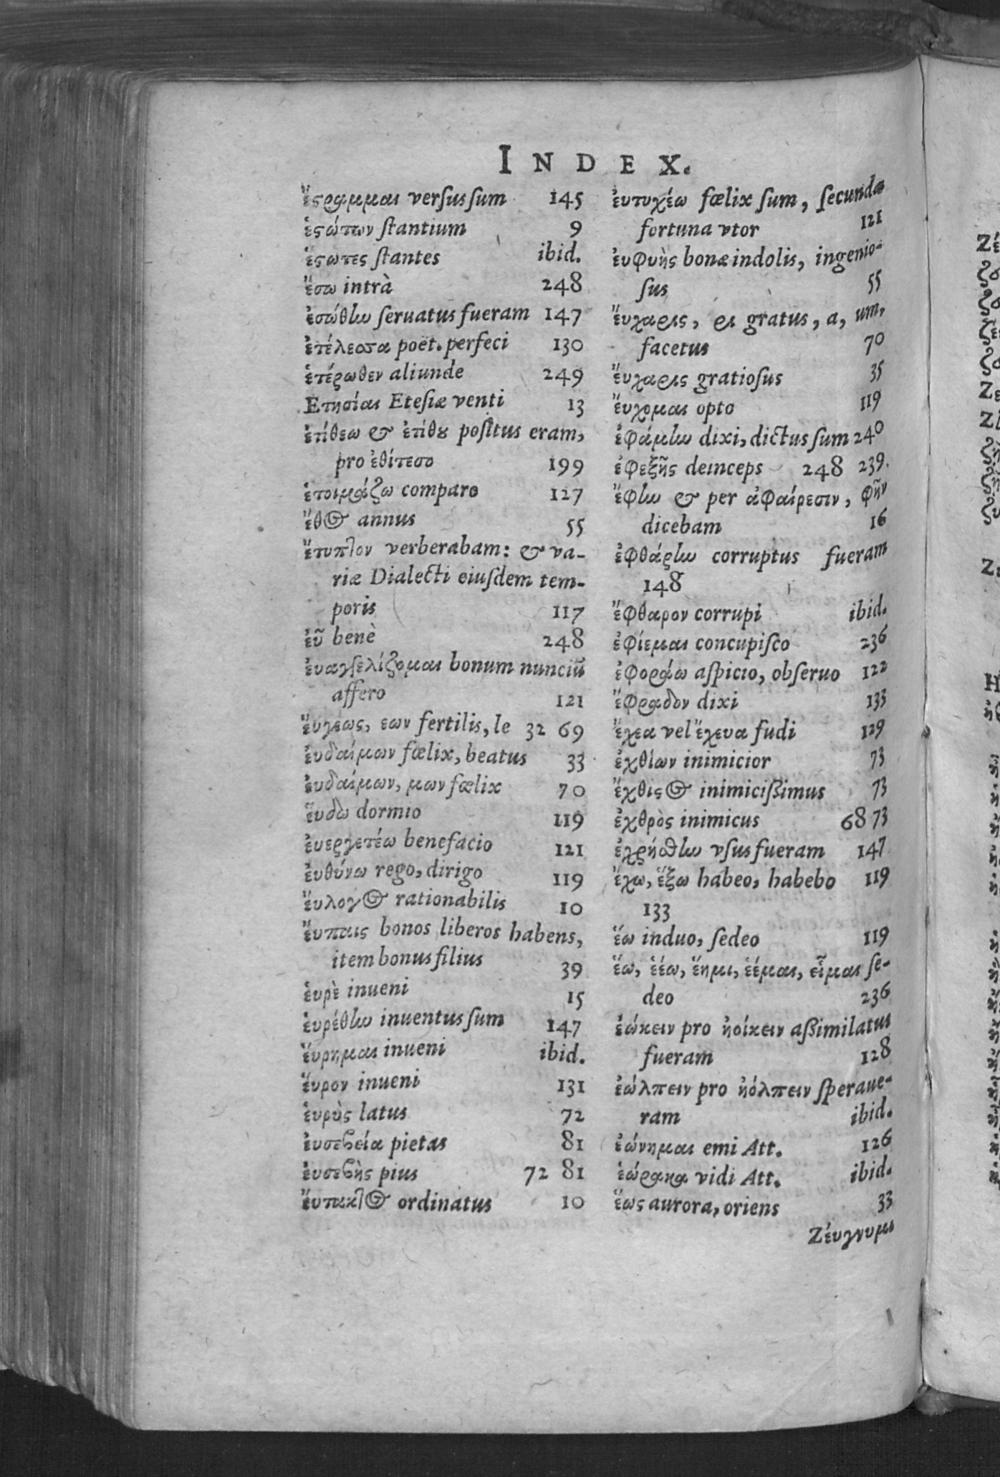 INDEX.
ἔςραμμαι versus sum 145
ἑςώτων ſtantium 9
ἑςῶτες ſtantes ibid.
ἔσω intrà 248
ἐσώθlω ſeruatus fueram 147
ἐτέλεσσα poët. perfeci 130
ἑτέρωθεν aliunde 249
Ετησίαι Etesiæ venti 13
ἐτίθεω & ἐτίθȣ positus eram,
pro ἐθίτεσο 199
ἑτοιμάζω comparo 127
ἔθος annus 55
ἔτυπτον verberabam: & va-
riæ Dialecti eiuſdem tem-
poris 117
ἐῦ benè 248
ἐυαγγελίζομαι bonum nunciũ
affero 121
ἔυγεως, εων fertilis, le 32 69
ἐυδαίμων fœlix, beatus 33
ἐυδαίμων, μων fœlix 70
ἕυδω dormio 119
ἐυεργετέω benefacio 121
ἐυθύνω rego, dirigo 119
ἔυλογος rationabilis 10
ἔυπαις bonos liberos habens,
item bonus filius 39
ἑυρὲ inueni 15
ἑυρέθlω inuentus ſum 147
ἕυρημαι inueni ibid.
ἕυρον inueni 131
ἐυρὺς latus 72
ἐυσεβεία pietas 81
ἐυσεβὴς pius 72 81
ἔυτακτος ordinatus 10
ἐυτυχέω fœlix ſum, ſecunda
fortuna vtor 121
ἐυφυὴς bonæ indolis, ingenio-
ſus 55
ἔυχαρις, ρι gratus, a, um,
facetus 70
ἔυχαρις gratioſus 35
ἔυχομαι opto 119
ἐφάμlω dixi, dictus ſum 240
ἐφεξῆς deinceps 248 239.
ἔφlω & per ἀφαίρεσιν, φῆν
dicebam 16
ἐφθάρlω corruptus fueram
148
ἔφθαρον corrupi ibid.
ἐφίεμαι concupiſco 236
ἐφοράω aſpicio, obſeruo 122
ἔφραδον dixi 133
ἔχεα vel ἔχευα fudi 129
ἐχθίων inimicior 73
ἔχθιςος inimicißimus 73
ἐχθρὸς inimicus 68 73
ἐχρήσθlω vſus fueram 147
ἔχω, ἕξω habeo, habebo 119
133
ἕω induo, ſedeo 119
ἕω, ἑέω, ἕημι, ἑέμαι, εἷμαι ſe-
deo 236
ἐώκειν pro ἠοίκειν aßimilatus
fueram 128
ἐώλπειν pro ἠόλπειν ſperaue-
ram ibid.
ἐώνημαι emi Att. 126
ἑώρακα vidi Att. ibid.
ἕως aurora, oriens 33
Ζέυγνυμι